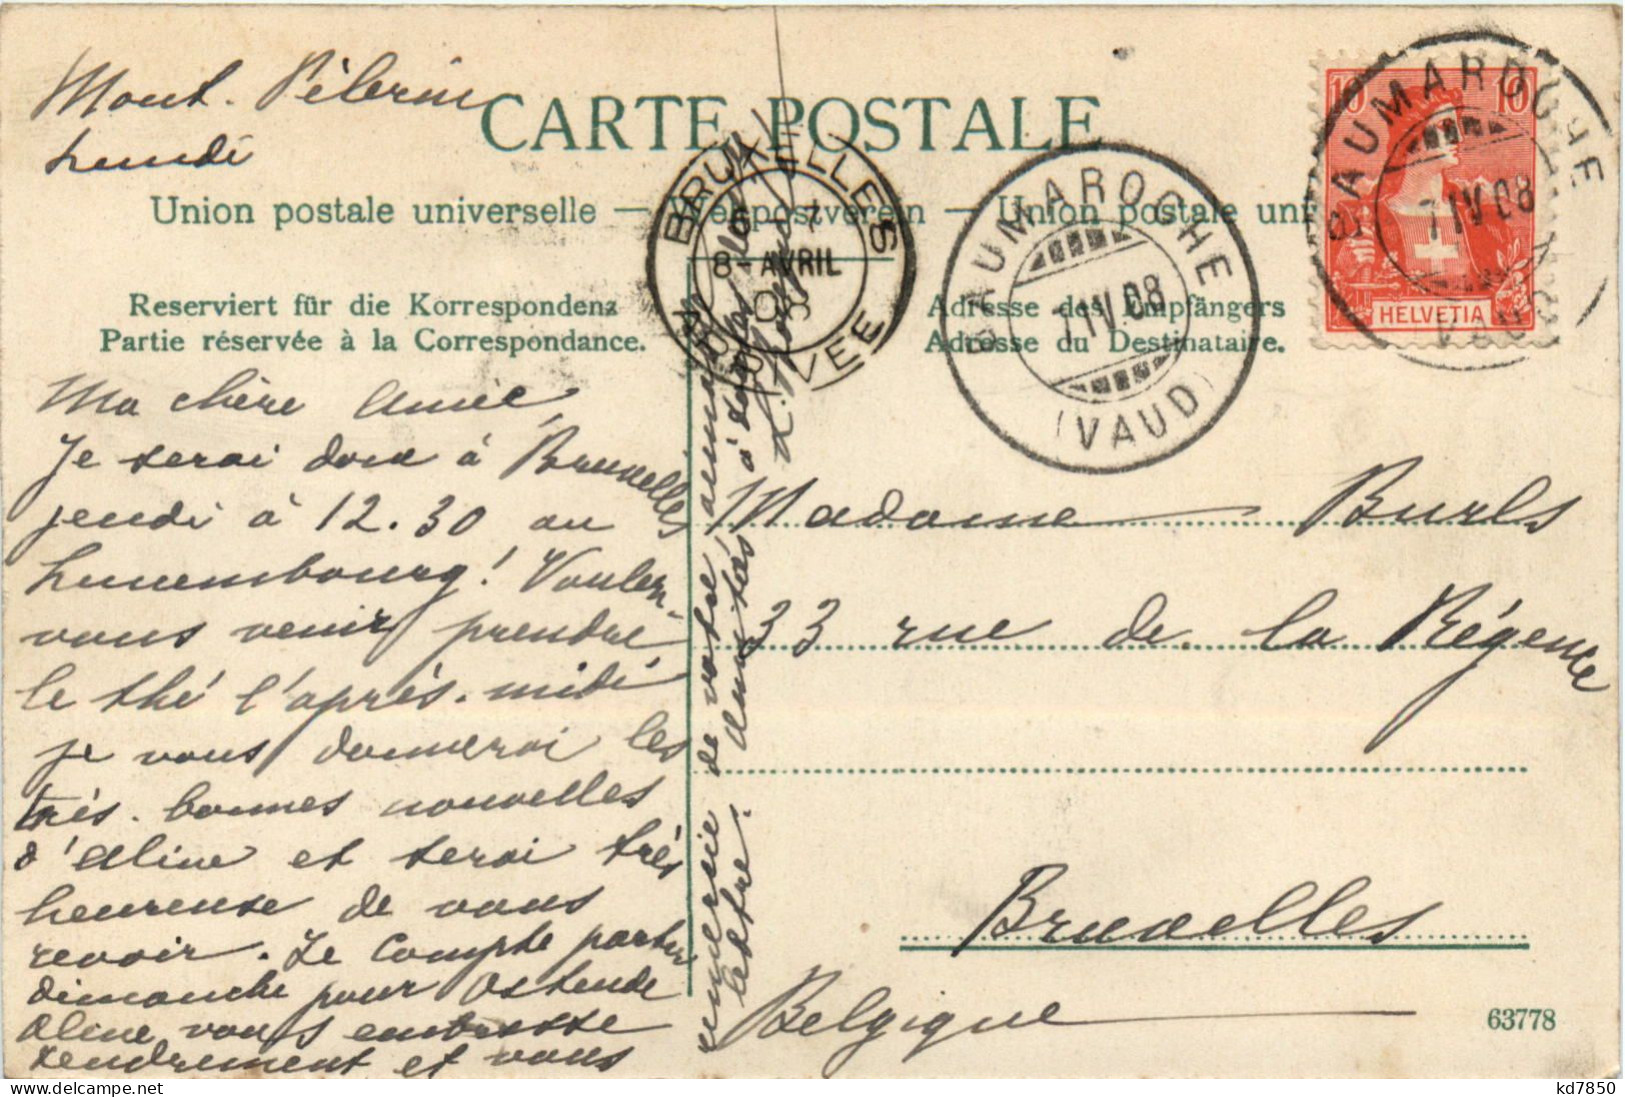 Mont. Pèlerin
Lundi
CARTE POSTALE
Union postale universelle — Weltpostverein — Union postale uni
Reserviert für die Korrespondenz
Partie réservée à la Correspondance.
Adresse des Empfängers
Adresse du Destinataire.
BRUXELLES
8-AVRIL
08
ARRIVÉE
BAUMAROCHE
7 IV 08
(VAUD)
BAUMAROCHE
7 IV 08
VAUD
10 10
HELVETIA
Ma chère Amie,
Je serai donc à Bruxelles
jeudi à 12.30 au
Luxembourg! Voulez-
vous venir prendre
le thé l'après-midi
je vous donnerai les
très bonnes nouvelles
d'Aline et serai très
heureuse de vous
revoir. Je compte partir
dimanche pour Ostende
Aline vous embrasse
tendrement et vous
remercie de votre
lettre.
amitiés à
Madame Burls
33 rue de la Régence
Bruxelles
Belgique
63778
kd7850